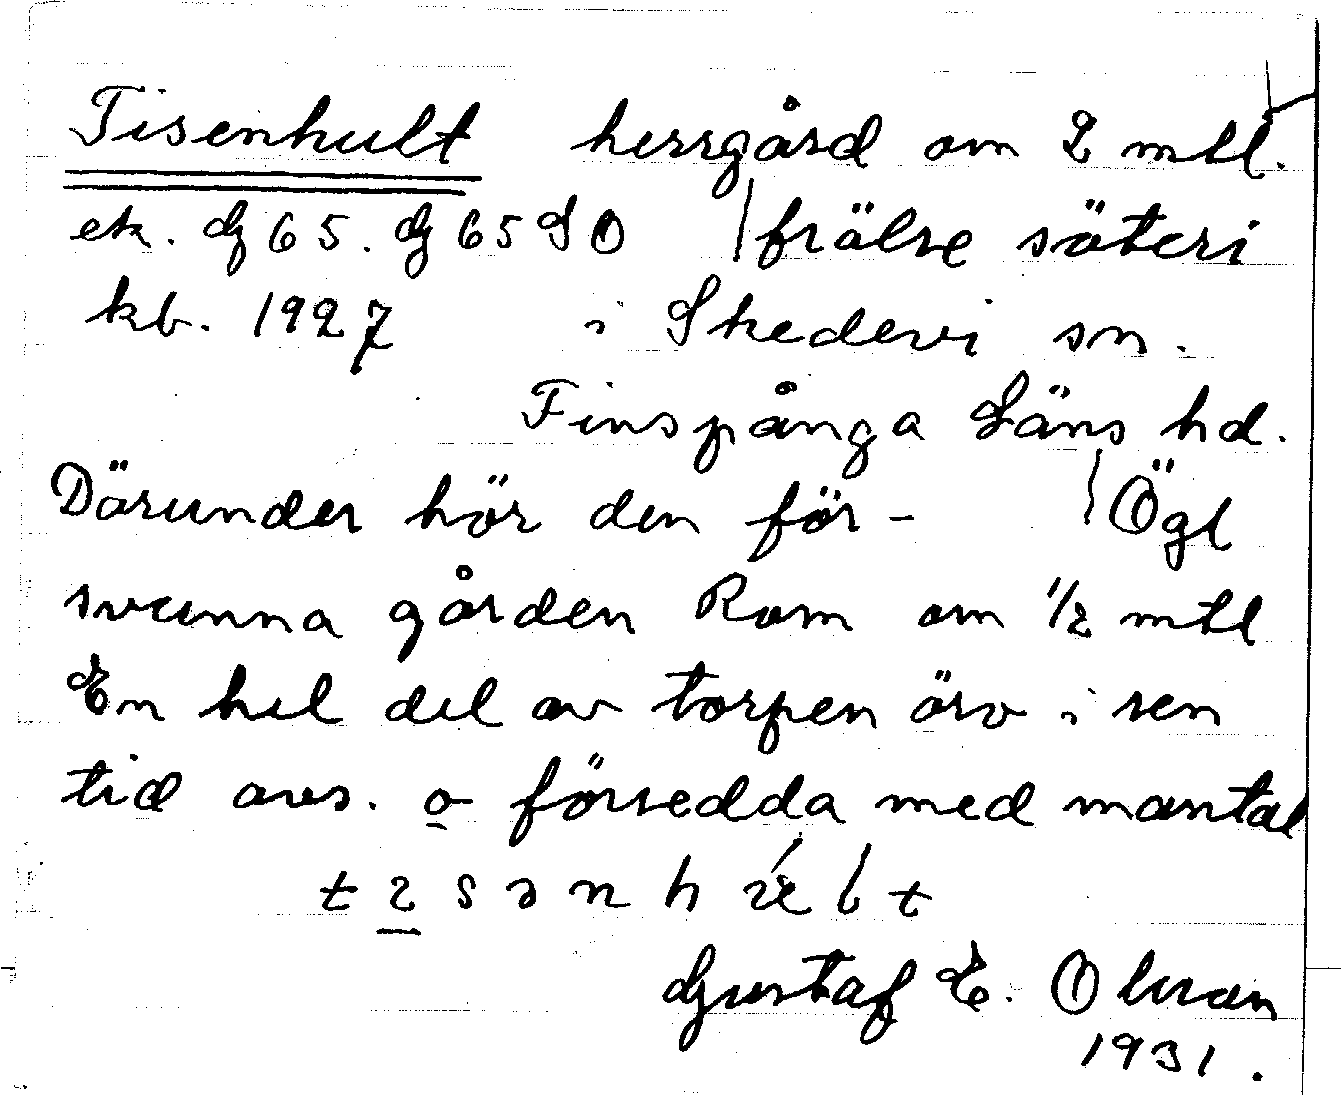 Tisenhult herrgård om 2 mtl.
ek. dj 65. dj 65 SO frälse säteri
kb. 1927 i Skedevi sn.
Finspånga Läns hd.
Därunder hör den för- Ögl
svunna gården Rom om 1/2 mtl
En hel del av torpen äro i sen
tid avs. o försedda med mantal
Gustaf E. Olman
1931.